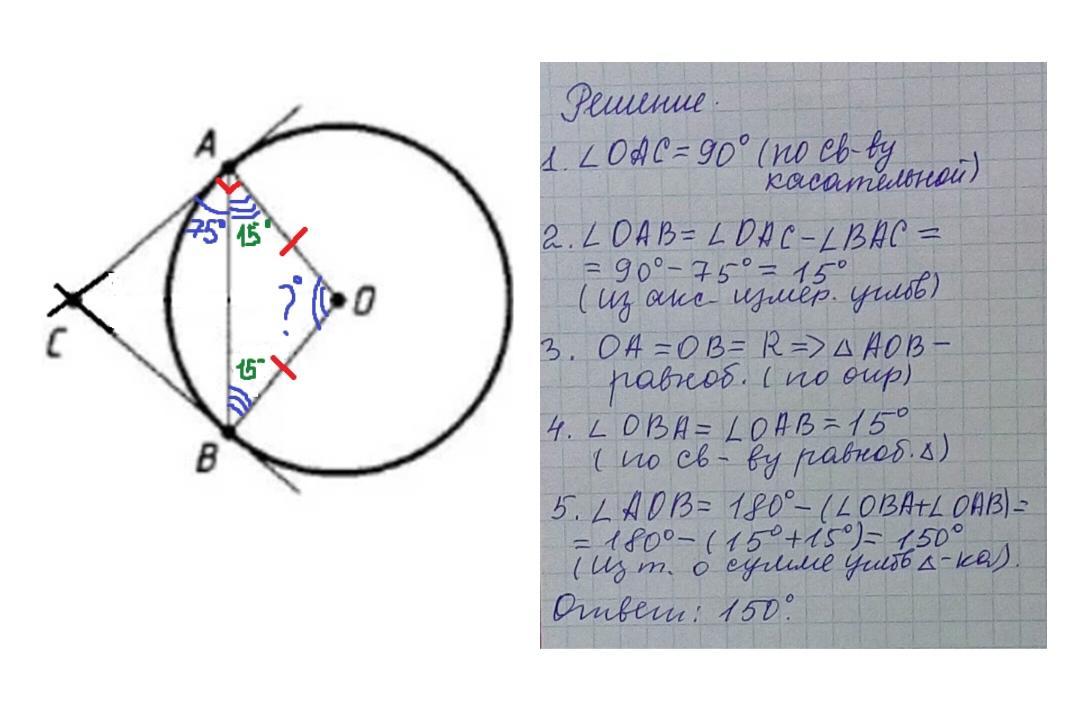 A
75°
15°
?°
O
C
15°
B
Решение.
1. ∠OAC = 90° (по св-ву
касательной)
2. ∠OAB = ∠OAC - ∠BAC =
= 90° - 75° = 15°
(из акс. измер. углов)
3. OA = OB = R => △ AOB -
равноб. (по опр)
4. ∠OBA = ∠OAB = 15°
(по св-ву равноб. △)
5. ∠AOB = 180° - (∠OBA + ∠OAB) =
= 180° - (15° + 15°) = 150°
(из т. о сумме углов △-ка).
Ответ: 150°.